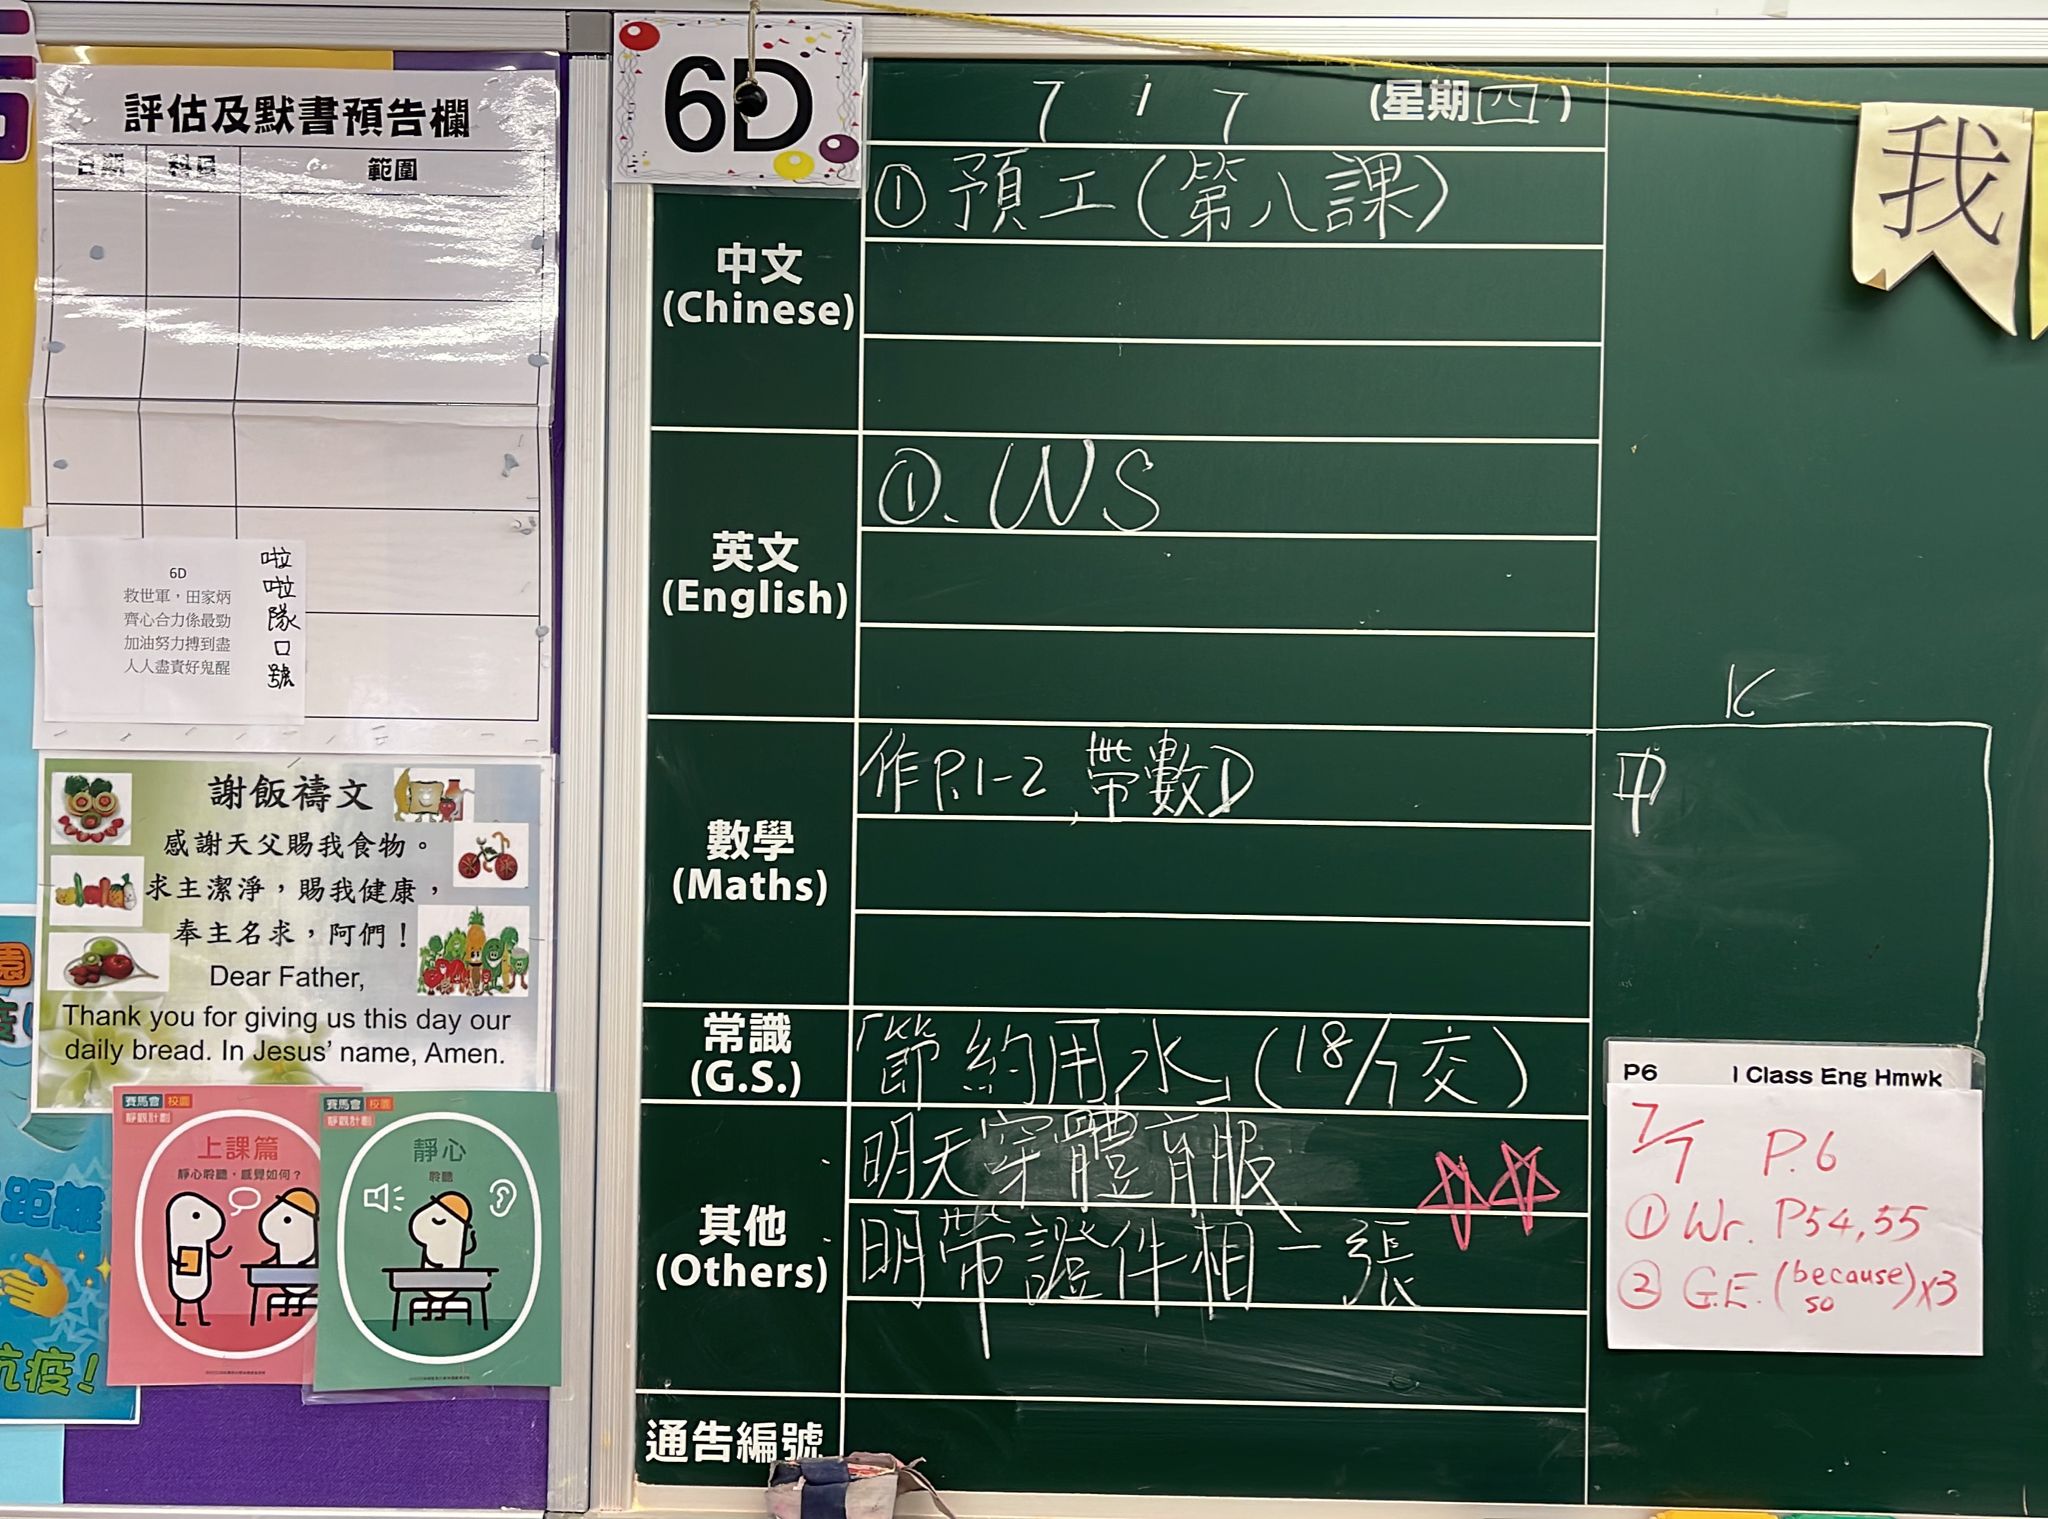 評估及默書預告欄
日期 科目 範圍
6D
救世軍，田家炳
齊心合力係最勁
加油努力搏到盡
人人盡責好鬼醒
啦啦隊口號
謝飯禱文
感謝天父賜我食物。
求主潔淨，賜我健康，
奉主名求，阿們！
Dear Father,
Thank you for giving us this day our
daily bread. In Jesus' name, Amen.
賽馬會 校園
靜觀計劃
上課篇
靜心聆聽，感覺如何？
賽馬會 校園
靜觀計劃
靜心
聆聽
距離
抗疫！
6D
7 ' 7 (星期四)
中文
(Chinese)
①預工(第八課)
英文
(English)
①. WS
數學
(Maths)
作P.1-2,帶數D
常識
(G.S.)
「節約用水」(18/7交)
其他
(Others)
明天穿體育服
明帶證件相一張
通告編號
我
K
中
P6 1 Class Eng Hmwk
7/7 P.6
① Wr. P54,55
② G.E. (because so)x3